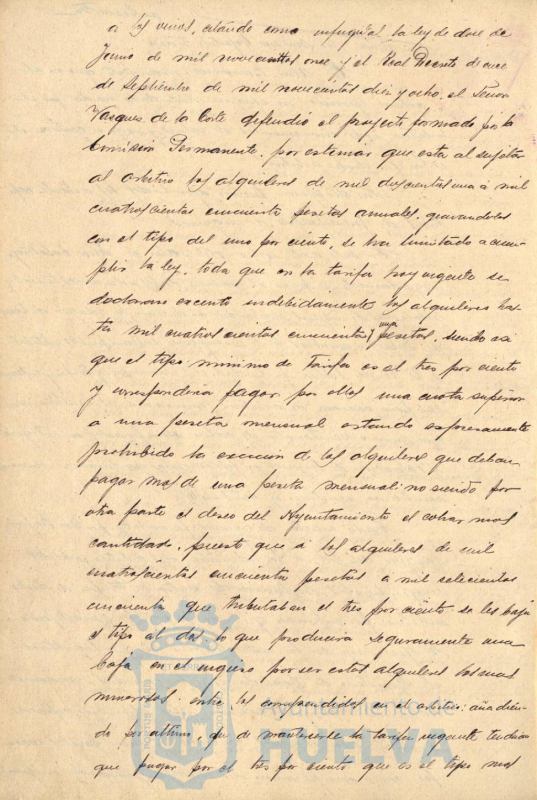 á los unos, citando como infringidas la ley de doce de
Junio de mil novecientos once y el Real Decreto de once
de Septiembre de mil novecientos diez y ocho, el Señor
Vazquez de la Corte defendió el proyecto formado por la
Comisión Permanente, por estimar que esta al sujetar
al arbitrio los alquileres de mil doscientas una á mil
cuatrocientas cincuenta pesetas anuales, gravandolos
con el tipo del uno por ciento, se ha limitado a cum-
plir la ley, toda que en la tarifa hoy vigente se
declararon exento indebidamente los alquileres has-
ta mil cuatrocientas cincuenta y una pesetas, siendo asi
que el tipo minimo de Tarifa es el tres por ciento
y corresponderia pagar por ellos una cuota superior
a una peseta mensual estando expresamente
prohibido la exención de los alquileres que deban
pagar mas de una peseta mensual: no siendo por
otra parte el deseo del Ayuntamiento el cobrar mas
cantidad, puesto que á los alquileres de mil
cuatrocientas cincuenta pesetas a mil setecientas
cincuenta que tributaban el tres por ciento se les baja
el tipo al dos, lo que producirá seguramente una
baja en el ingreso por ser estos alquileres los mas
numerosos, entre los comprendidos en el arbitrio: añadien-
do por ultimo, que de mantenerse la tarifa vigente tendrian
que pagar por el tres por ciento que es el tipo mas
Ayuntamiento de
HUELVA